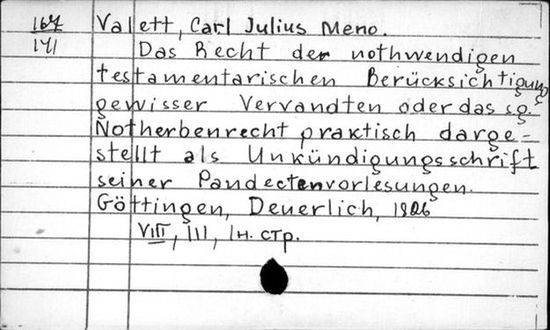 167
141
Valett, Carl Julius Meno.
Das Recht der nothwendigen
testamentarischen Berücksichtigung
gewisser Vervandten oder das sg.
Notherbenrecht praktisch darge-
stellt als Unkündigungsschrift
seiner Pandectenvorlesungen.
Göttingen, Deuerlich, 1826
VIII, 111, 1 н. стр.